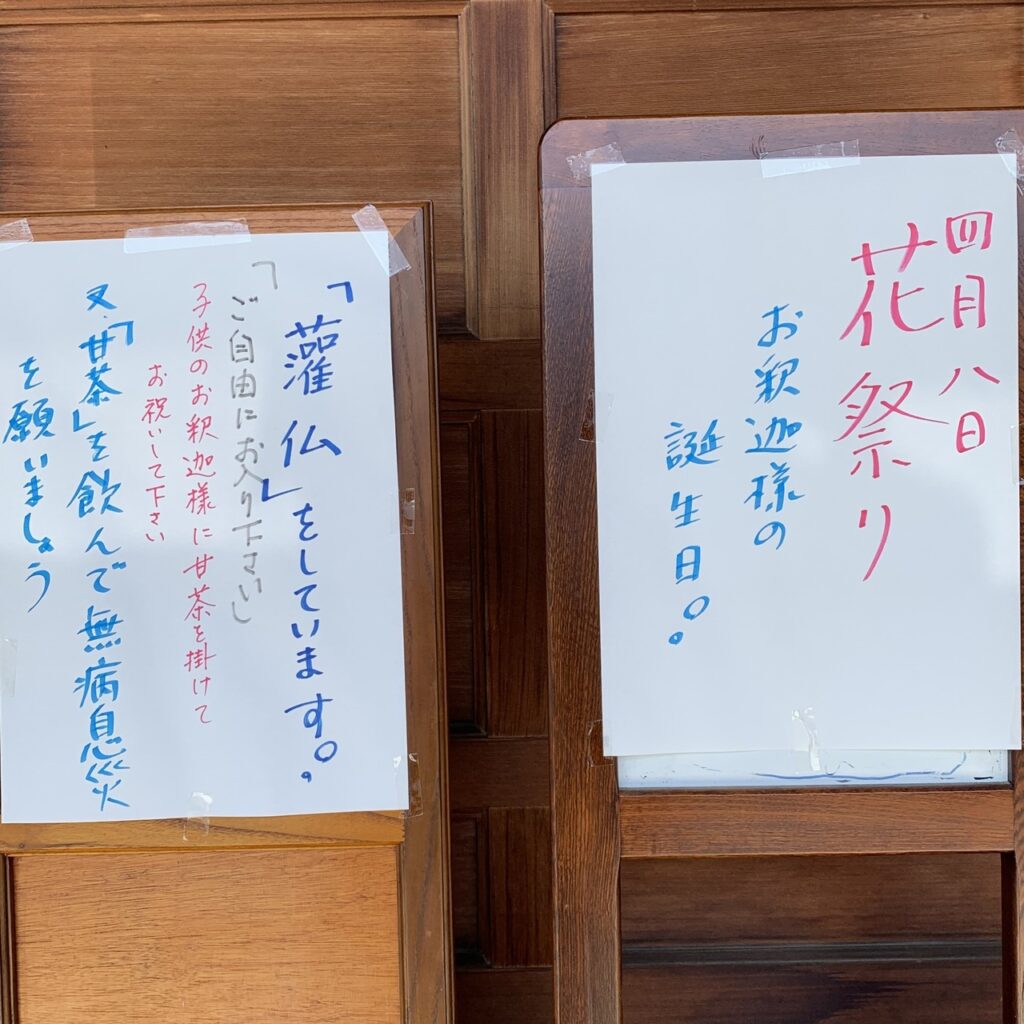 四月八日
花祭り
お釈迦様の
誕生日。
「灌仏」をしています。
「ご自由にお入り下さい」
子供のお釈迦様に甘茶を掛けて
お祝いして下さい
又、「甘茶」を飲んで無病息災
を願いましょう